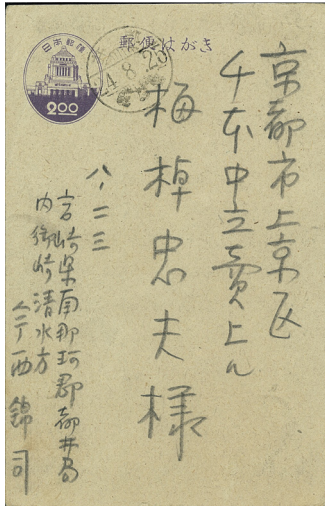 郵便はがき
日本郵便
2.00
24.8.23
京都市上京区
千本中立賣上ル
梅棹忠夫様
八・二三
宮崎県南那珂郡都井局
内御崎清水方
今西錦司